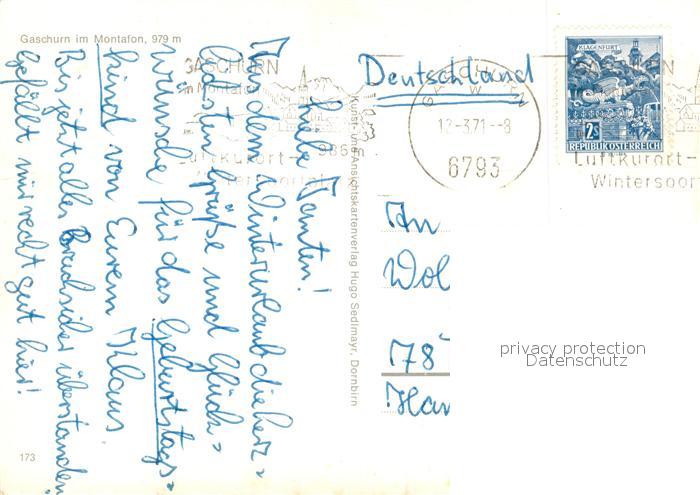 Gaschurn im Montafon, 979 m
Liebe Tanten!
Aus dem Winterurlaub die herz-
lichsten Grüße und Glück-
wünsche für das Geburtstags-
kind von Eurem Klaus
Bis jetzt alles bruchsicher überstanden,
gefällt mir recht gut hier!
173
Kunst- und Ansichtskartenverlag Hugo Sedlmayr, Dornbirn
GASCHURN
im Montafon
986m
Luftkurort-
Wintersportpl
GASCHURN
12-3.71--8
6793
KLAGENFURT
2S
REPUBLIK ÖSTERREICH
Luftkurort-
Winterspor
Deutschland
An
Wol
78
Han
privacy protection
Datenschutz